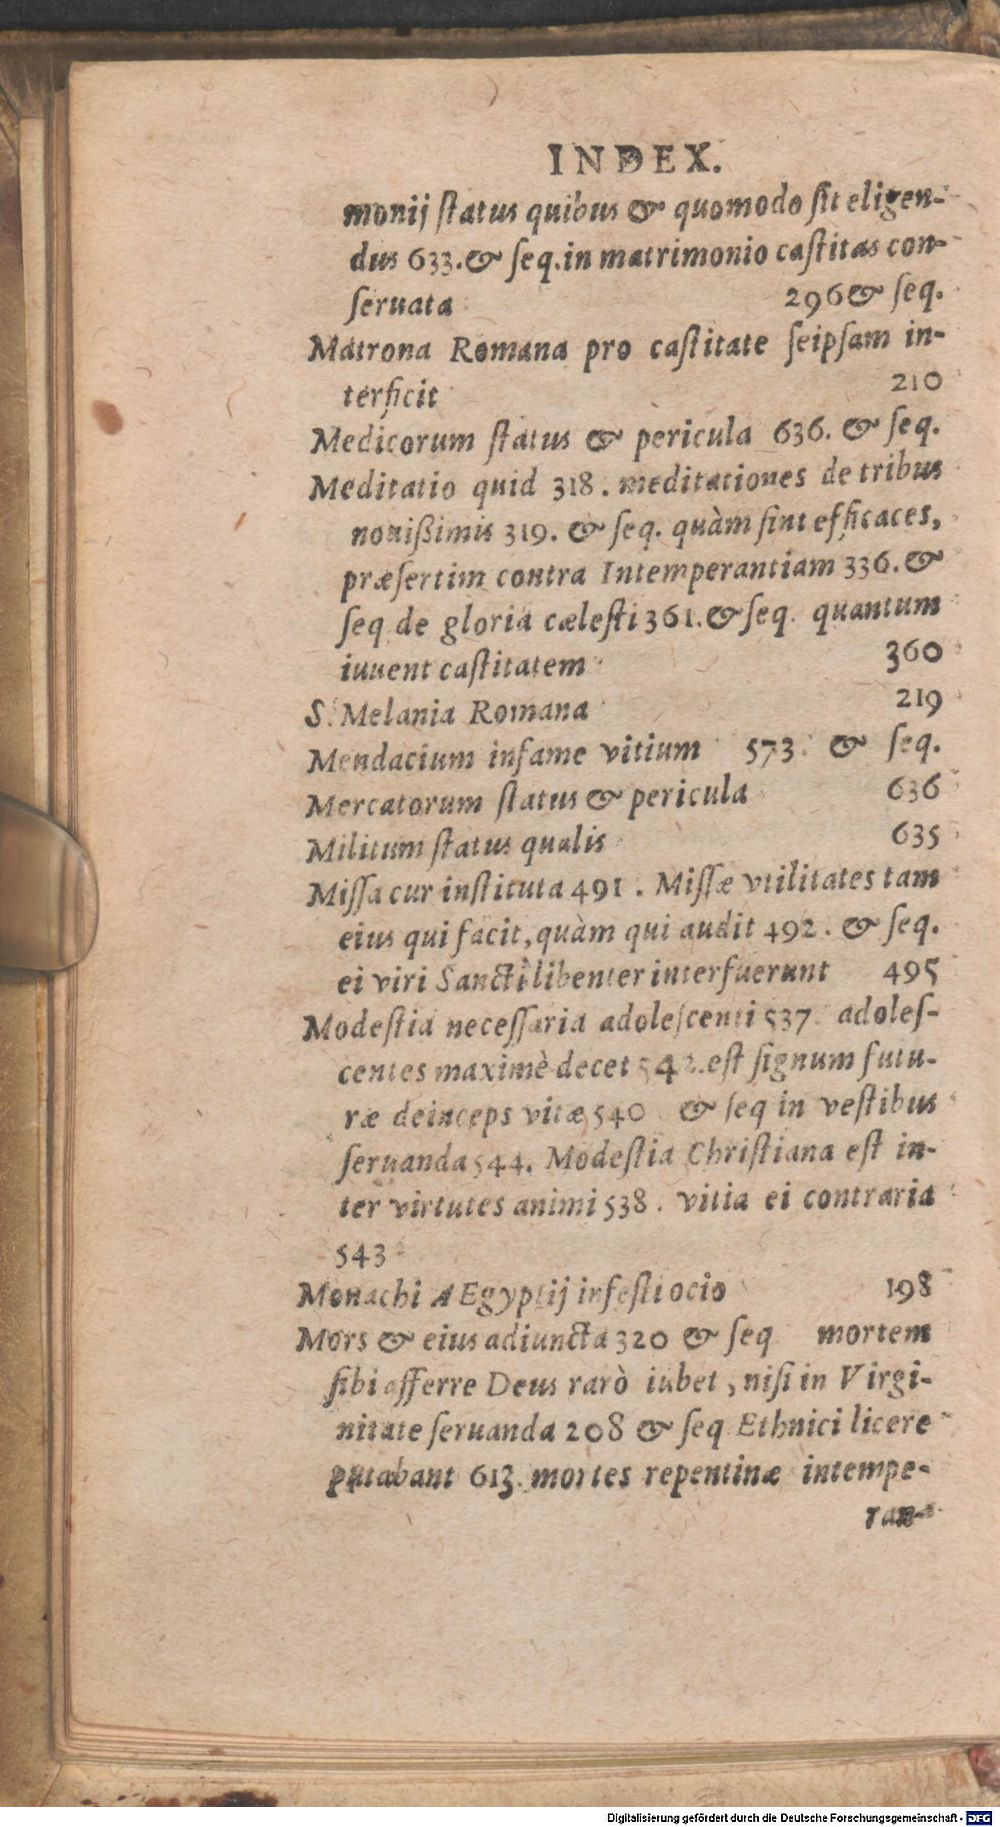 INDEX.
monij ſtatus quibus & quomodo ſit eligen-
dus 633. & ſeq. in matrimonio caſtitas con-
ſeruata 296 & ſeq.
Matrona Romana pro caſtitate ſeipſam in-
terficit 210
Medicorum ſtatus & pericula 636. & ſeq.
Meditatio quid 318. meditationes de tribus
nouißimis 319. & ſeq. quàm ſint efficaces,
præſertim contra Intemperantiam 336. &
ſeq de gloria cæleſti 361. & ſeq. quantum
iuuent caſtitatem 360
S. Melania Romana 219
Mendacium infame vitium 573. & ſeq.
Mercatorum ſtatus & pericula 636
Militum ſtatus qualis 635
Miſſa cur inſtituta 491. Miſſæ vtilitates tam
eius qui facit, quàm qui audit 492. & ſeq.
ei viri Sancti libenter interfuerunt 495
Modeſtia neceſſaria adoleſcenti 537. adoleſ-
centes maximè decet 542. eſt ſignum futu-
ræ deinceps vitæ 540. & ſeq in veſtibus
ſeruanda 544. Modeſtia Chriſtiana eſt in-
ter virtutes animi 538. vitia ei contraria
543
Monachi AEgyptij infeſti ocio 198
Mors & eius adiuncta 320 & ſeq mortem
ſibi afferre Deus rarò iubet, niſi in Virgi-
nitate ſeruanda 208 & ſeq Ethnici licere
putabant 613. mortes repentinæ intempe-
ran-
Digitalisierung gefördert durch die Deutsche Forschungsgemeinschaft - DFG